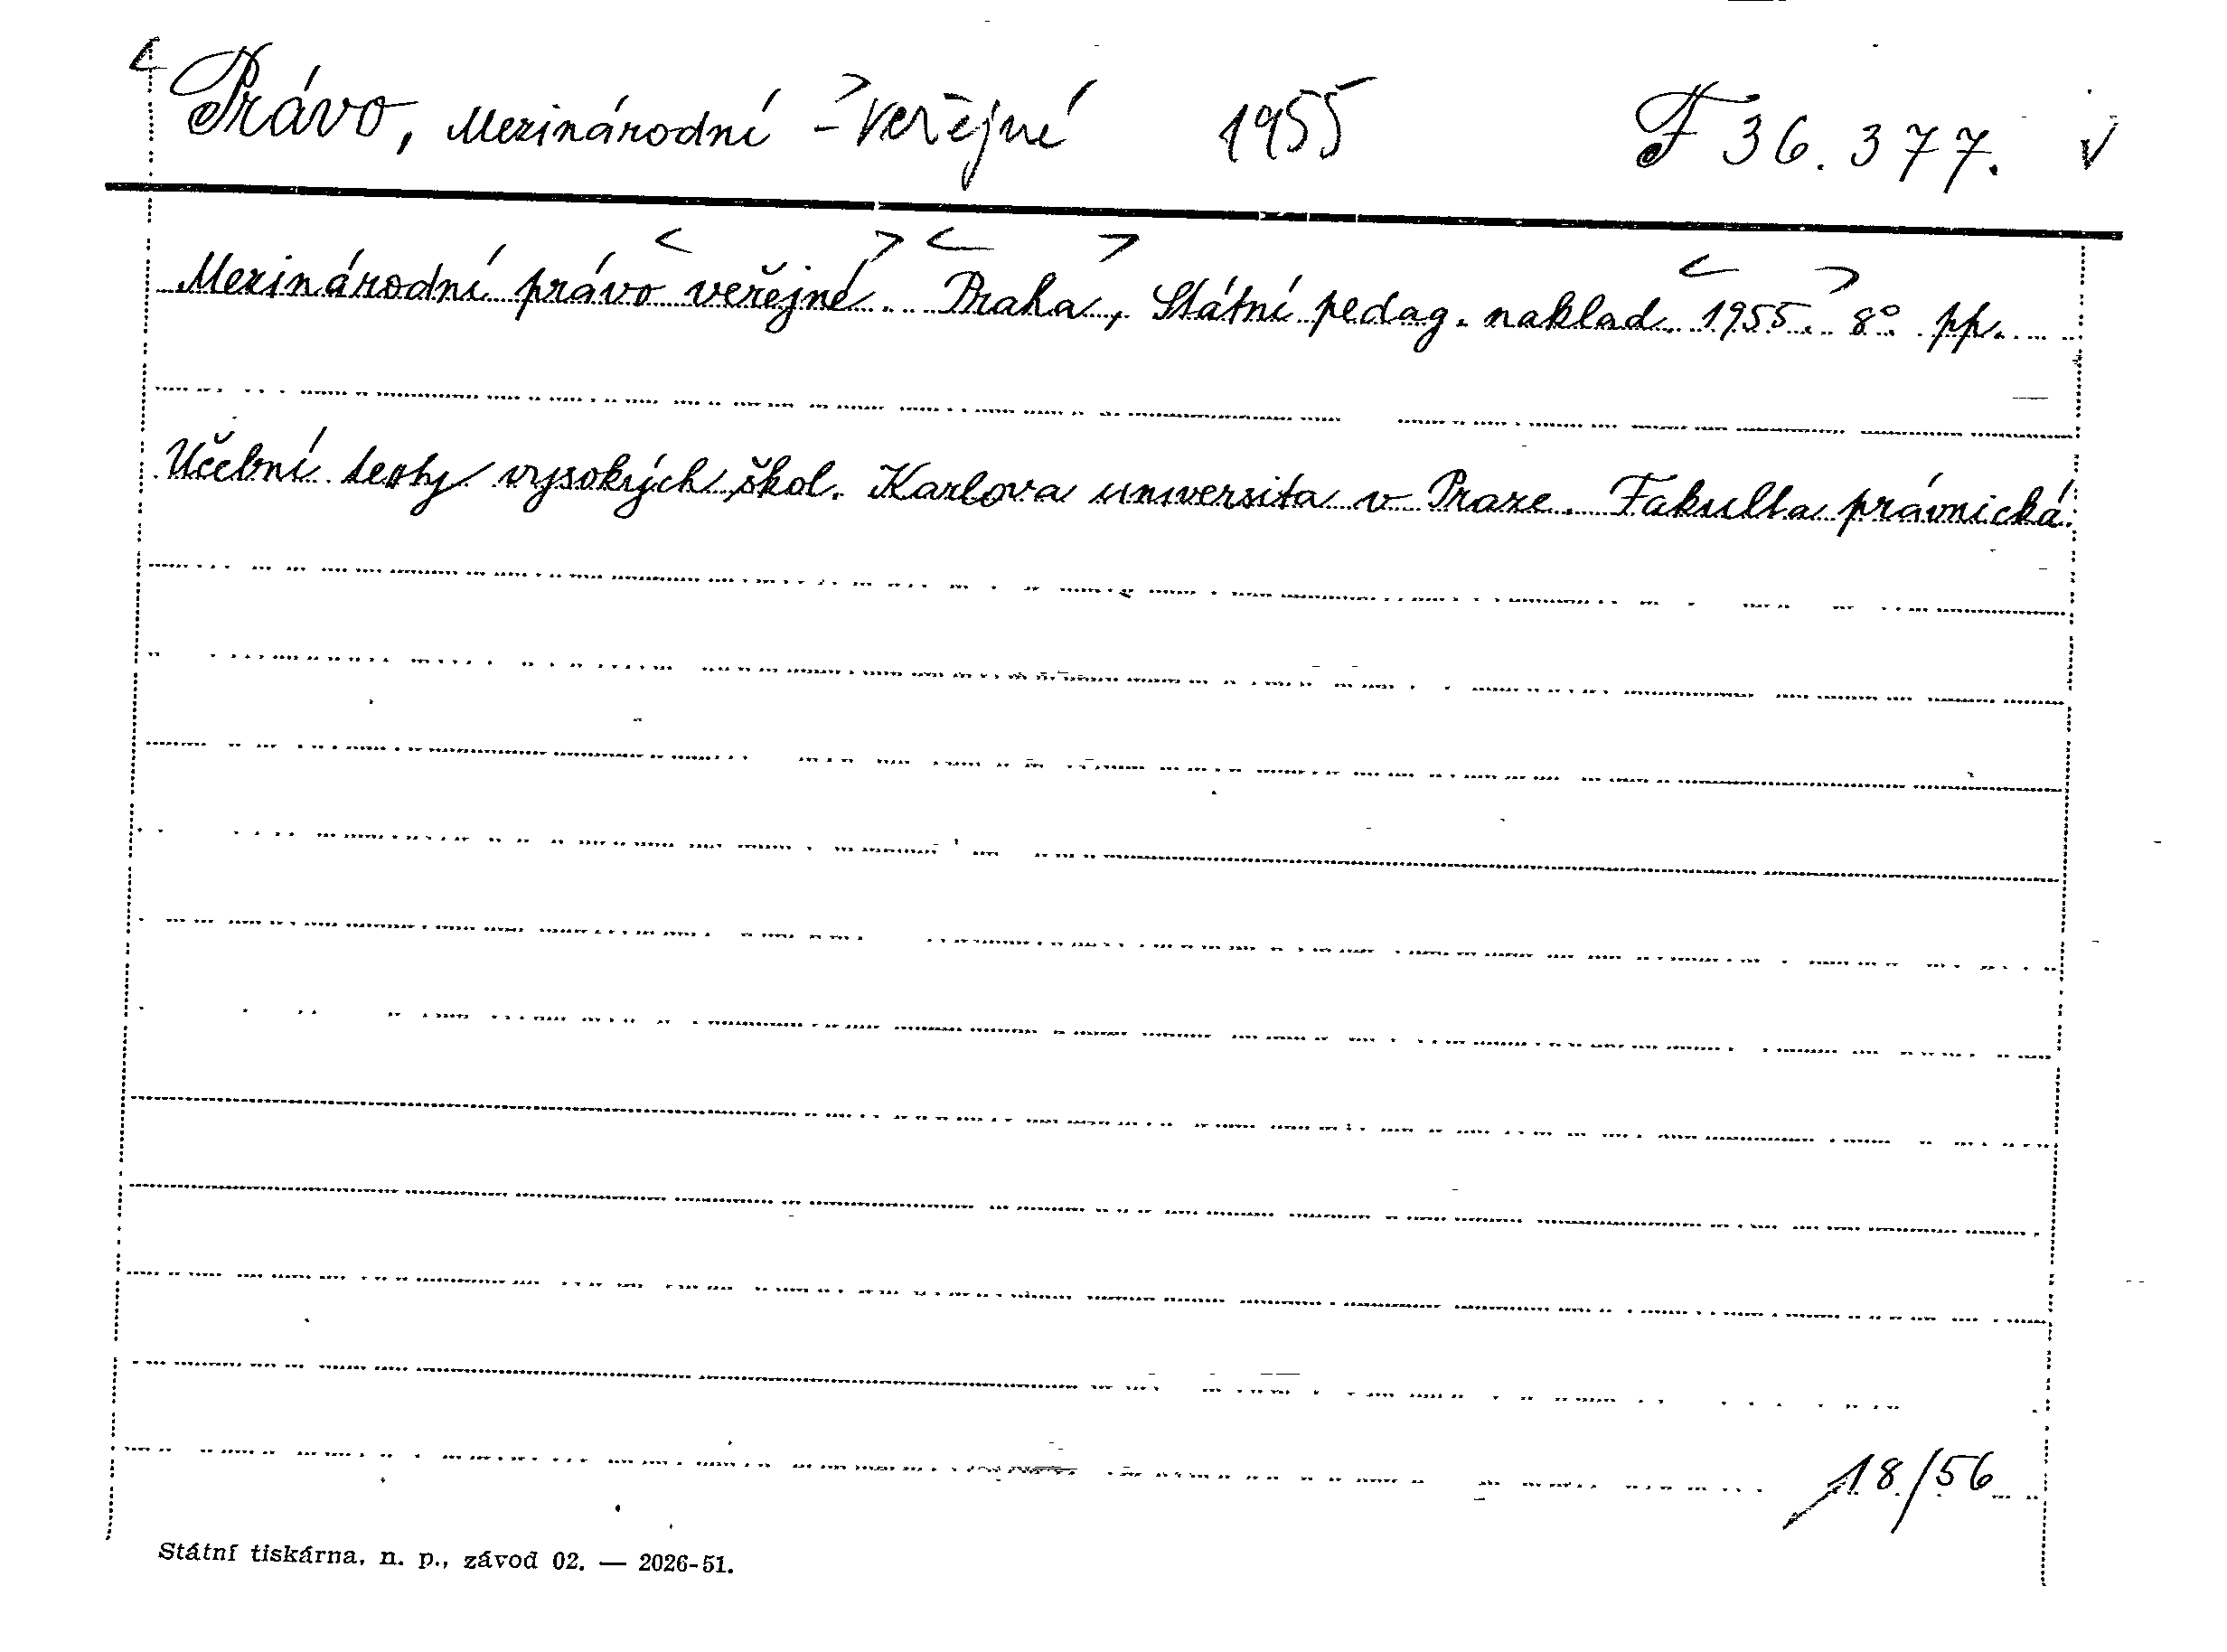 < Právo, Mezinárodní > - veřejné 1955 F 36.377. √
Mezinárodní právo < veřejné. > < Praha, > Státní pedag. naklad. < 1955. > 8°. pp.
Učební texty vysokých škol. Karlova universita v Praze. Fakulta právnická.
18/56
Státní tiskárna, n. p., závod 02. — 2026-51.